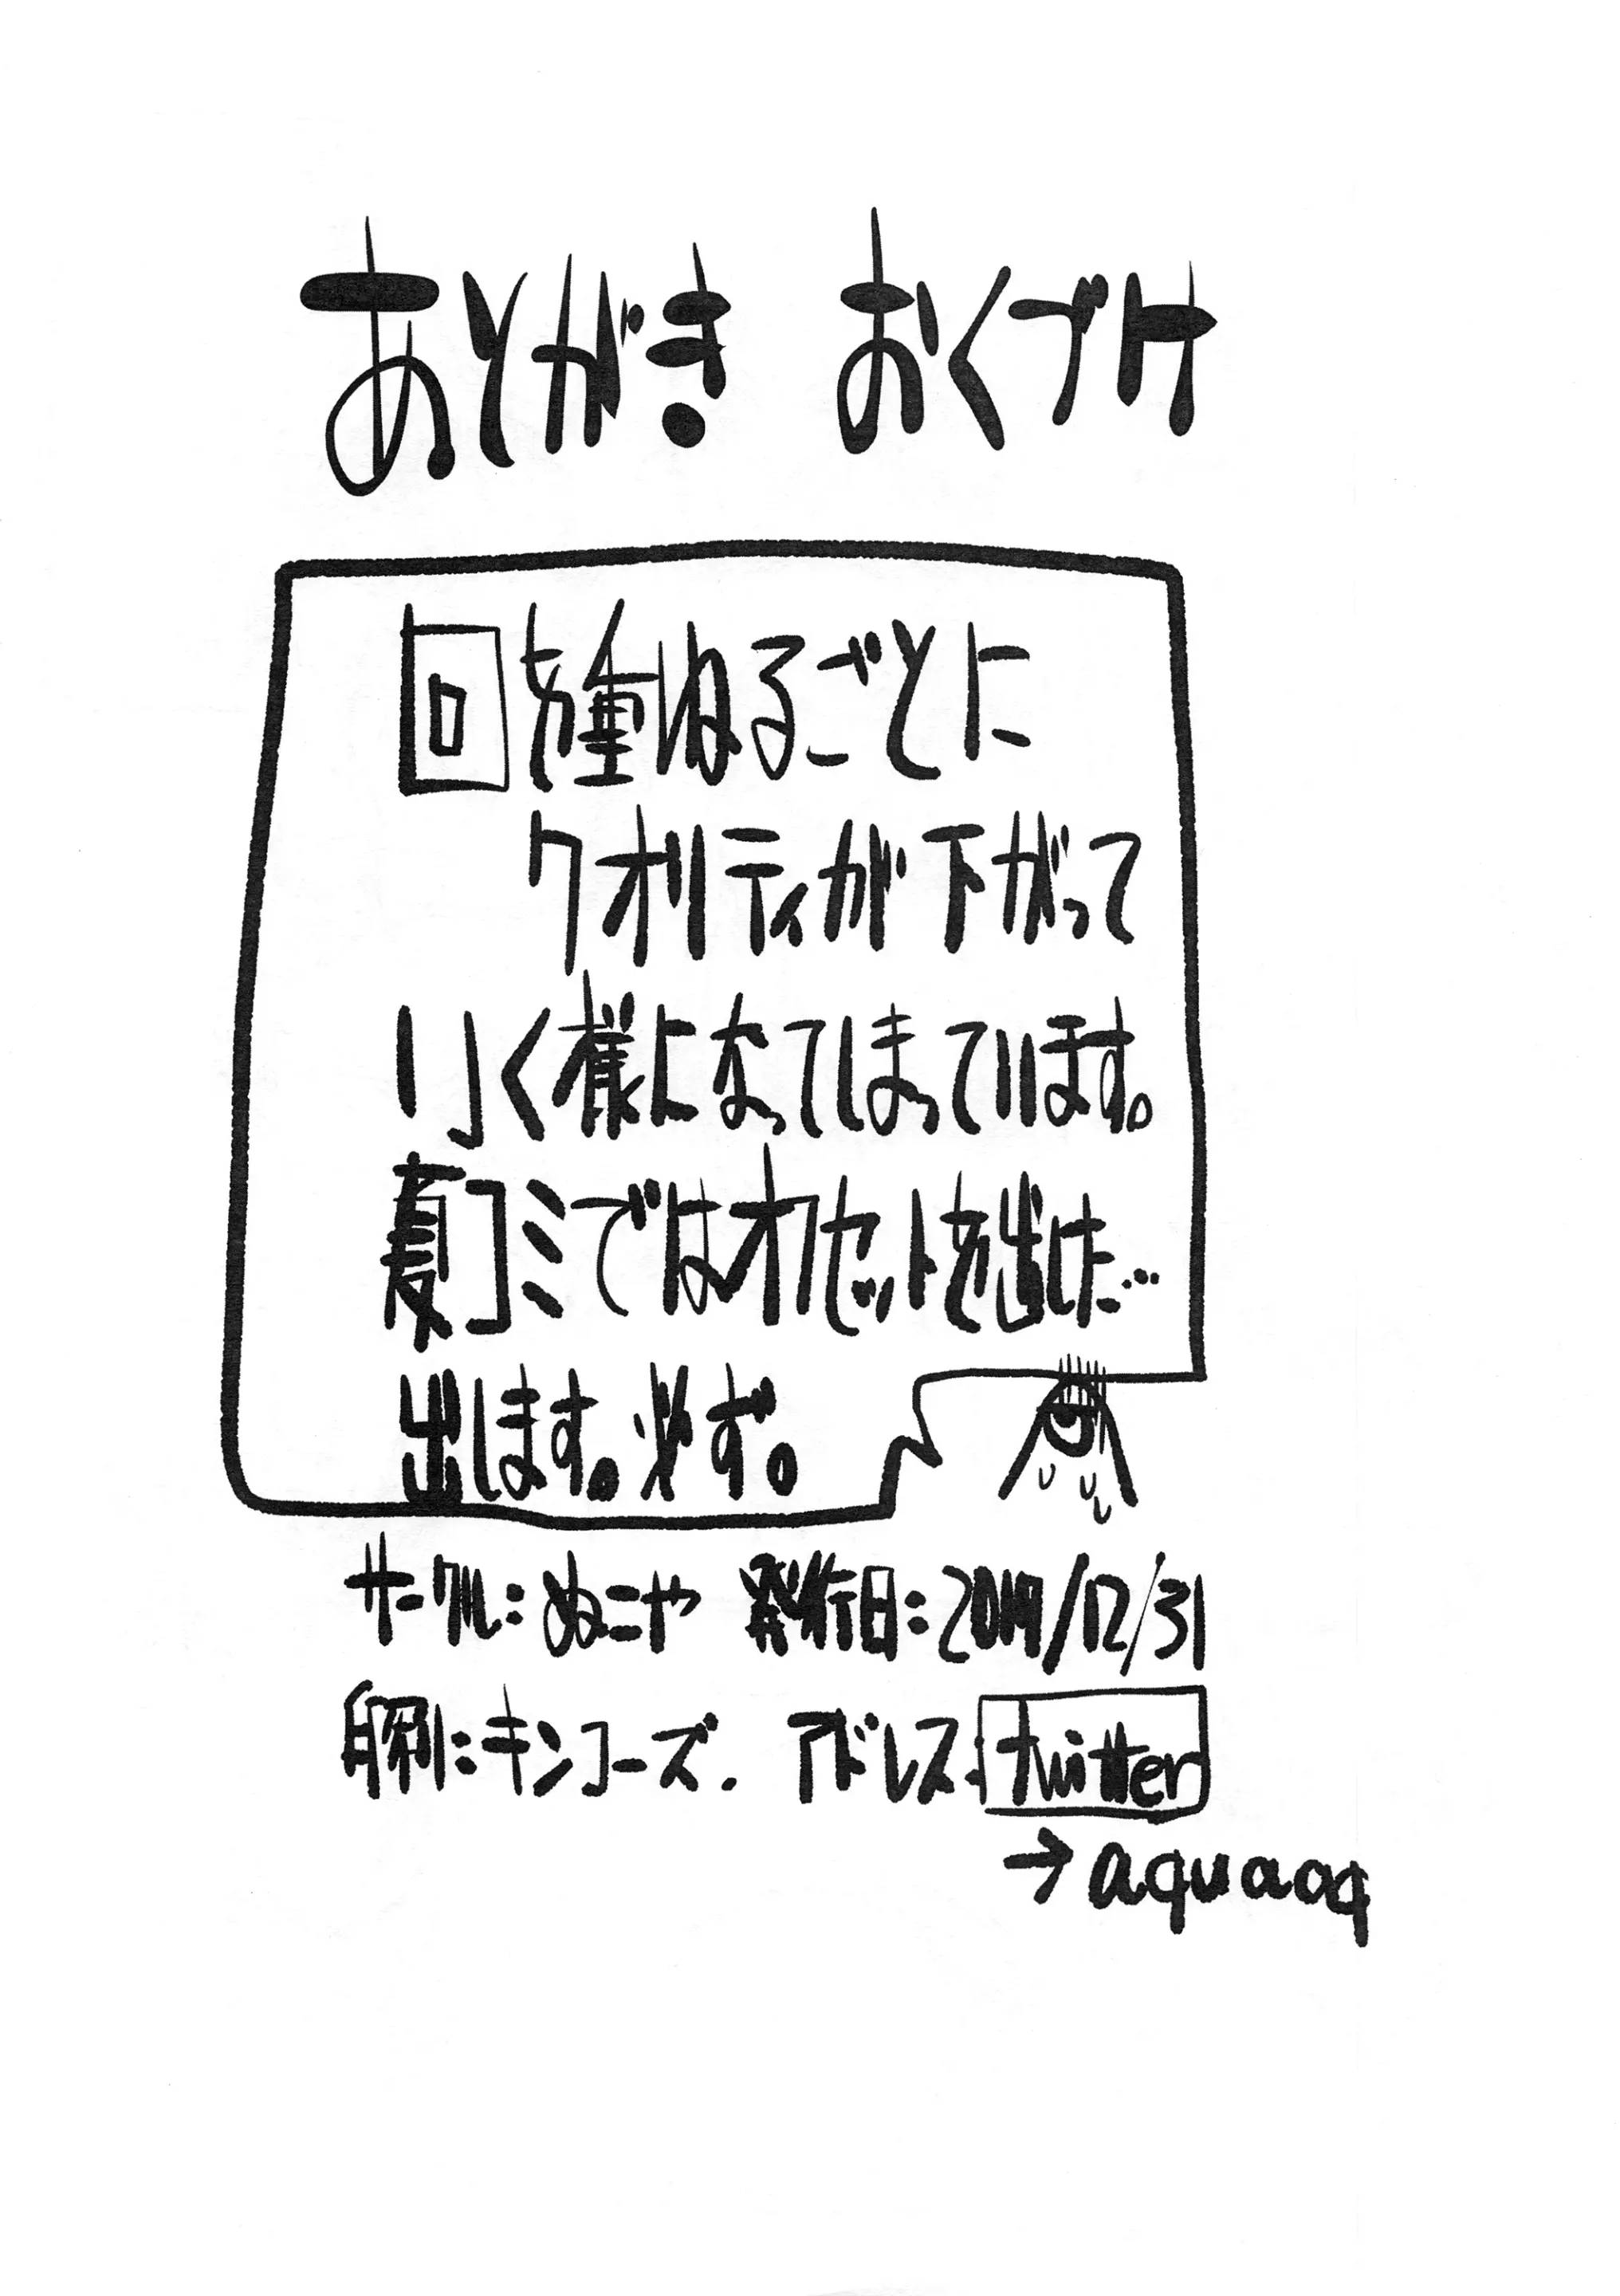 あとがき おくづけ
回を重ねるごとに
クオリティが下がって
いく様になってしまっています。
夏コミではオフセットを出した…
出します。必ず。
サークル:ぬこや 発行日: /12/31
印刷:キンコーズ. アドレス:twitter
→aquaoq